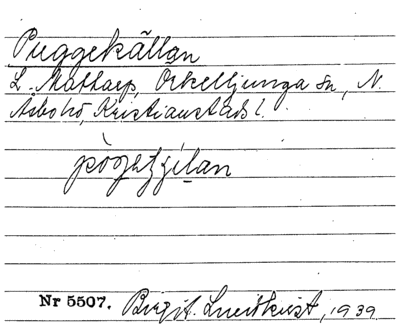 Puggekällan
L. Mattarp, Örkelljunga sn, N.
Åsbo hd, Kristianstads l.
Nr 5507. Birgit Lundkvist, 1939